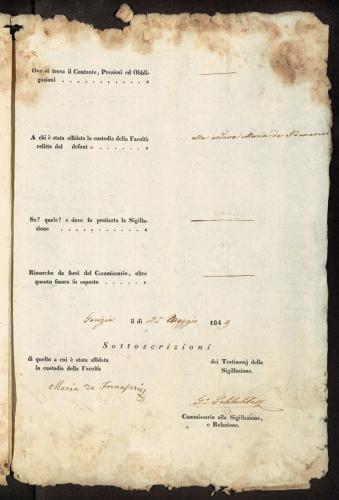 Ove si trova il Contante, Preziosi ed Obbli-
gazioni . . . . . . . . . . . «
A chi è stata affidata la custodia della Facoltà
relitta dal defunto . . . . . . . «
alla vedova Maria de Fornasari
Se? quale? e dove fu praticata la Sigilla-
zione . . . . . . . . . . . . «
Rimarche da farsi dal Commissario, oltre
quanto finora fu esposto . . . . . «
Gorizia il dì 25 Maggio 1849
Sottoscrizioni
di quello a cui è stata affidata
la custodia della Facoltà
dei Testimonj della
Sigillazione.
Maria de Fornasari
Commissario alla Sigillazione,
e Relazione.